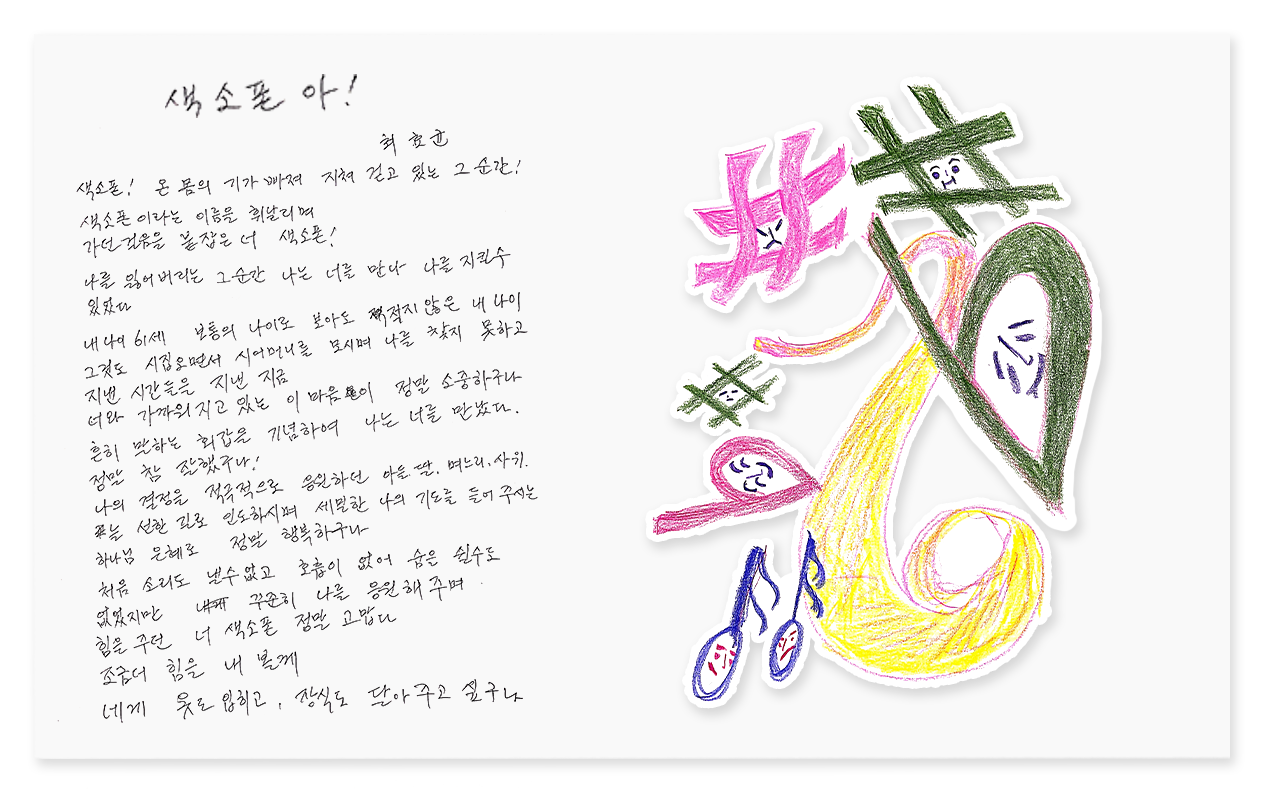 색소폰 아!
최 효균
색소폰! 온 몸의 기가 빠져 지쳐 걷고 있는 그 순간!
색소폰이라는 이름을 휘날리며
가던걸음을 붙잡은 너 색소폰!
나를 잃어버리는 그순간 나는 너를 만나 나를 지킬수
있었다
내 나이 61세 보통의 나이로 보아도 적지 않은 내 나이
그것도 시집오면서 시어머니를 모시며 나를 찾지 못하고
지낸 시간들을 지낸 지금
너와 가까워 지고 있는 이 마음이 정말 소중하구나
흔히 말하는 회갑을 기념하여 나는 너를 만났다.
정말 참 잘했구나!
나의 결정을 적극적으로 응원하던 아들. 딸. 며느리. 사위.
늘 선한 길로 인도하시며 세밀한 나의 기도를 들어 주시는
하나님 은혜로 정말 행복하구나
처음 소리도 낼수없고 호흡이 없어 숨을 쉴수도
없었지만 꾸준히 나를 응원해 주며
힘을 주던 너 색소폰 정말 고맙다
조금더 힘을 내 볼께
네게 옷도 입히고, 장식도 달아 주고 싶구나